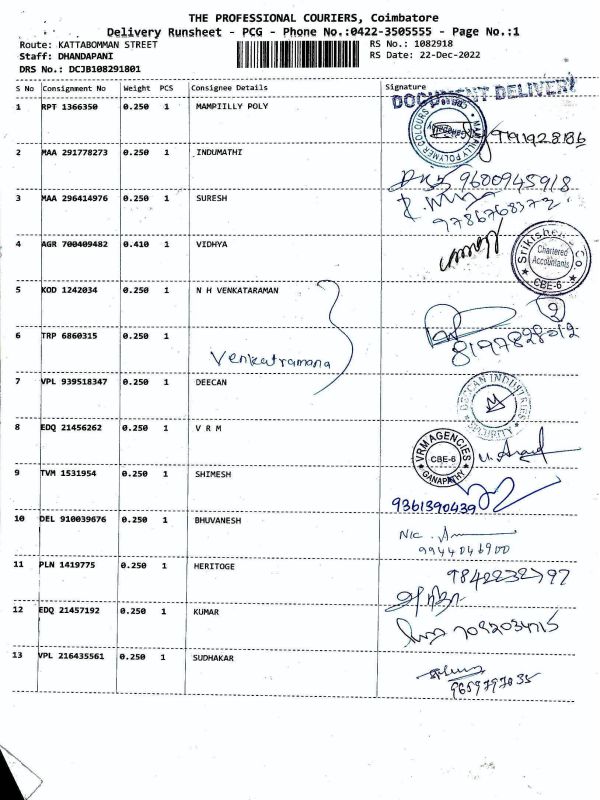 THE PROFESSIONAL COURIERS, Coimbatore
Delivery Runsheet - PCG - Phone No.:0422-3505555 - Page No.:1
Route: KATTABOMMAN STREET RS No.: 1082918
Staff: DHANDAPANI RS Date: 22-Dec-2022
DRS No.: DCJB108291801
S No Consignment No Weight PCS Consignee Details Signature
DOCUMENT DELIVERY
1 RPT 1366350 0.250 1 MAMPIILLY POLY
2 MAA 291778273 0.250 1 INDUMATHI
9600945918
3 MAA 296414976 0.250 1 SURESH
9786768372
4 AGR 700409482 0.410 1 VIDHYA
Srikishen Co
Chartered Accountants
CBE-6
5 KOD 1242034 0.250 1 N H VENKATARAMAN
2
6 TRP 6860315 0.250 1
Venkatramana
7 VPL 939518347 0.250 1 DEECAN
DECCAN INDUSTRIES
SECURITY
8 EDQ 21456262 0.250 1 V R M
VRM AGENCIES
CBE-6
GANAPATHY
9 TVM 1531954 0.250 1 SHIMESH
9361390439
10 DEL 910039676 0.250 1 BHUVANESH
9944046900
11 PLN 1419775 0.250 1 HERITOGE
9842232797
12 EDQ 21457192 0.250 1 KUMAR
7092034715
13 VPL 216435561 0.250 1 SUDHAKAR
9659797035